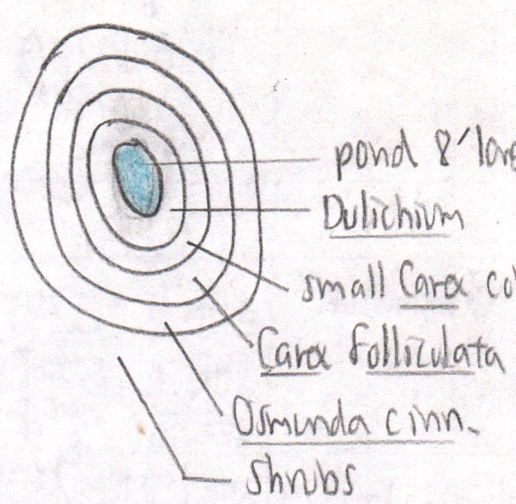 pond 8' long
Dulichium
small Carex col
Carex folliculata
Osmunda cinn.
shrubs